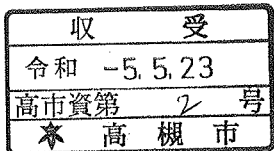 収受
令和 -5.5.23
高市資第 2 号
高槻市